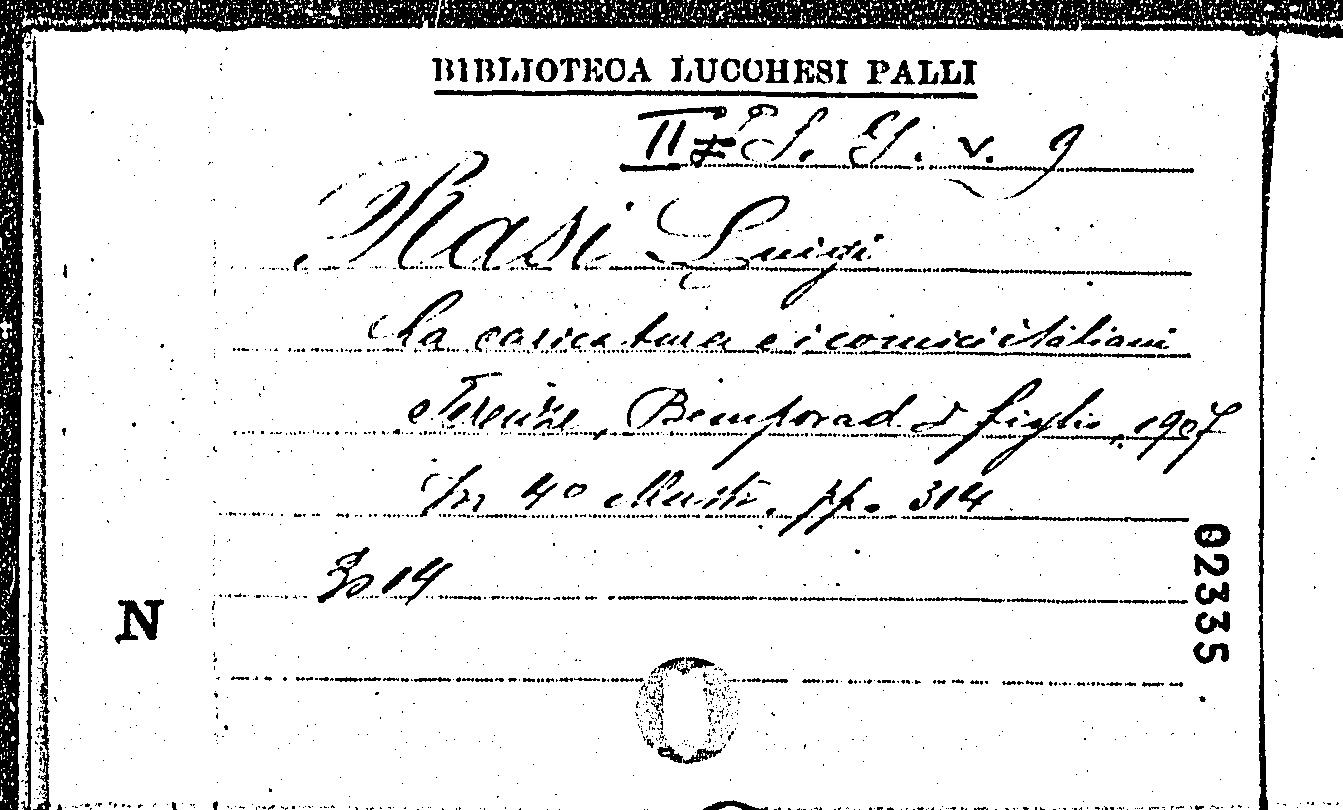 BIBLIOTECA LUCCHESI PALLI
II S. G. v. 9
Rasi Luigi
La caricatura e i comici italiani
Firenze, Bemporad & figlio, 1907
In 4° illustr. pp. 314
N
02335